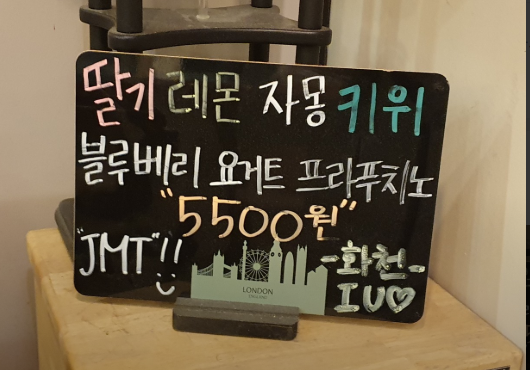 딸기 레몬 자몽 키위
블루베리 요거트 프라푸치노
"5500원"
"JMT"!!
-화천-
IU♡
LONDON